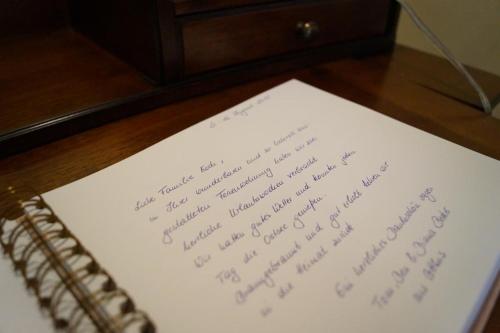 Liebe Familie Koch,
in Ihrer wunderbaren und so liebevoll
gestalteten Ferienwohnung haben wir
herrliche Urlaubswochen verbracht.
Wir hatten gutes Wetter und konnten jeden
Tag die Ostsee genießen.
und gut erholt fahren wir
in die Heimat zurück
Ein herzliches Dankeschön sagen
aus